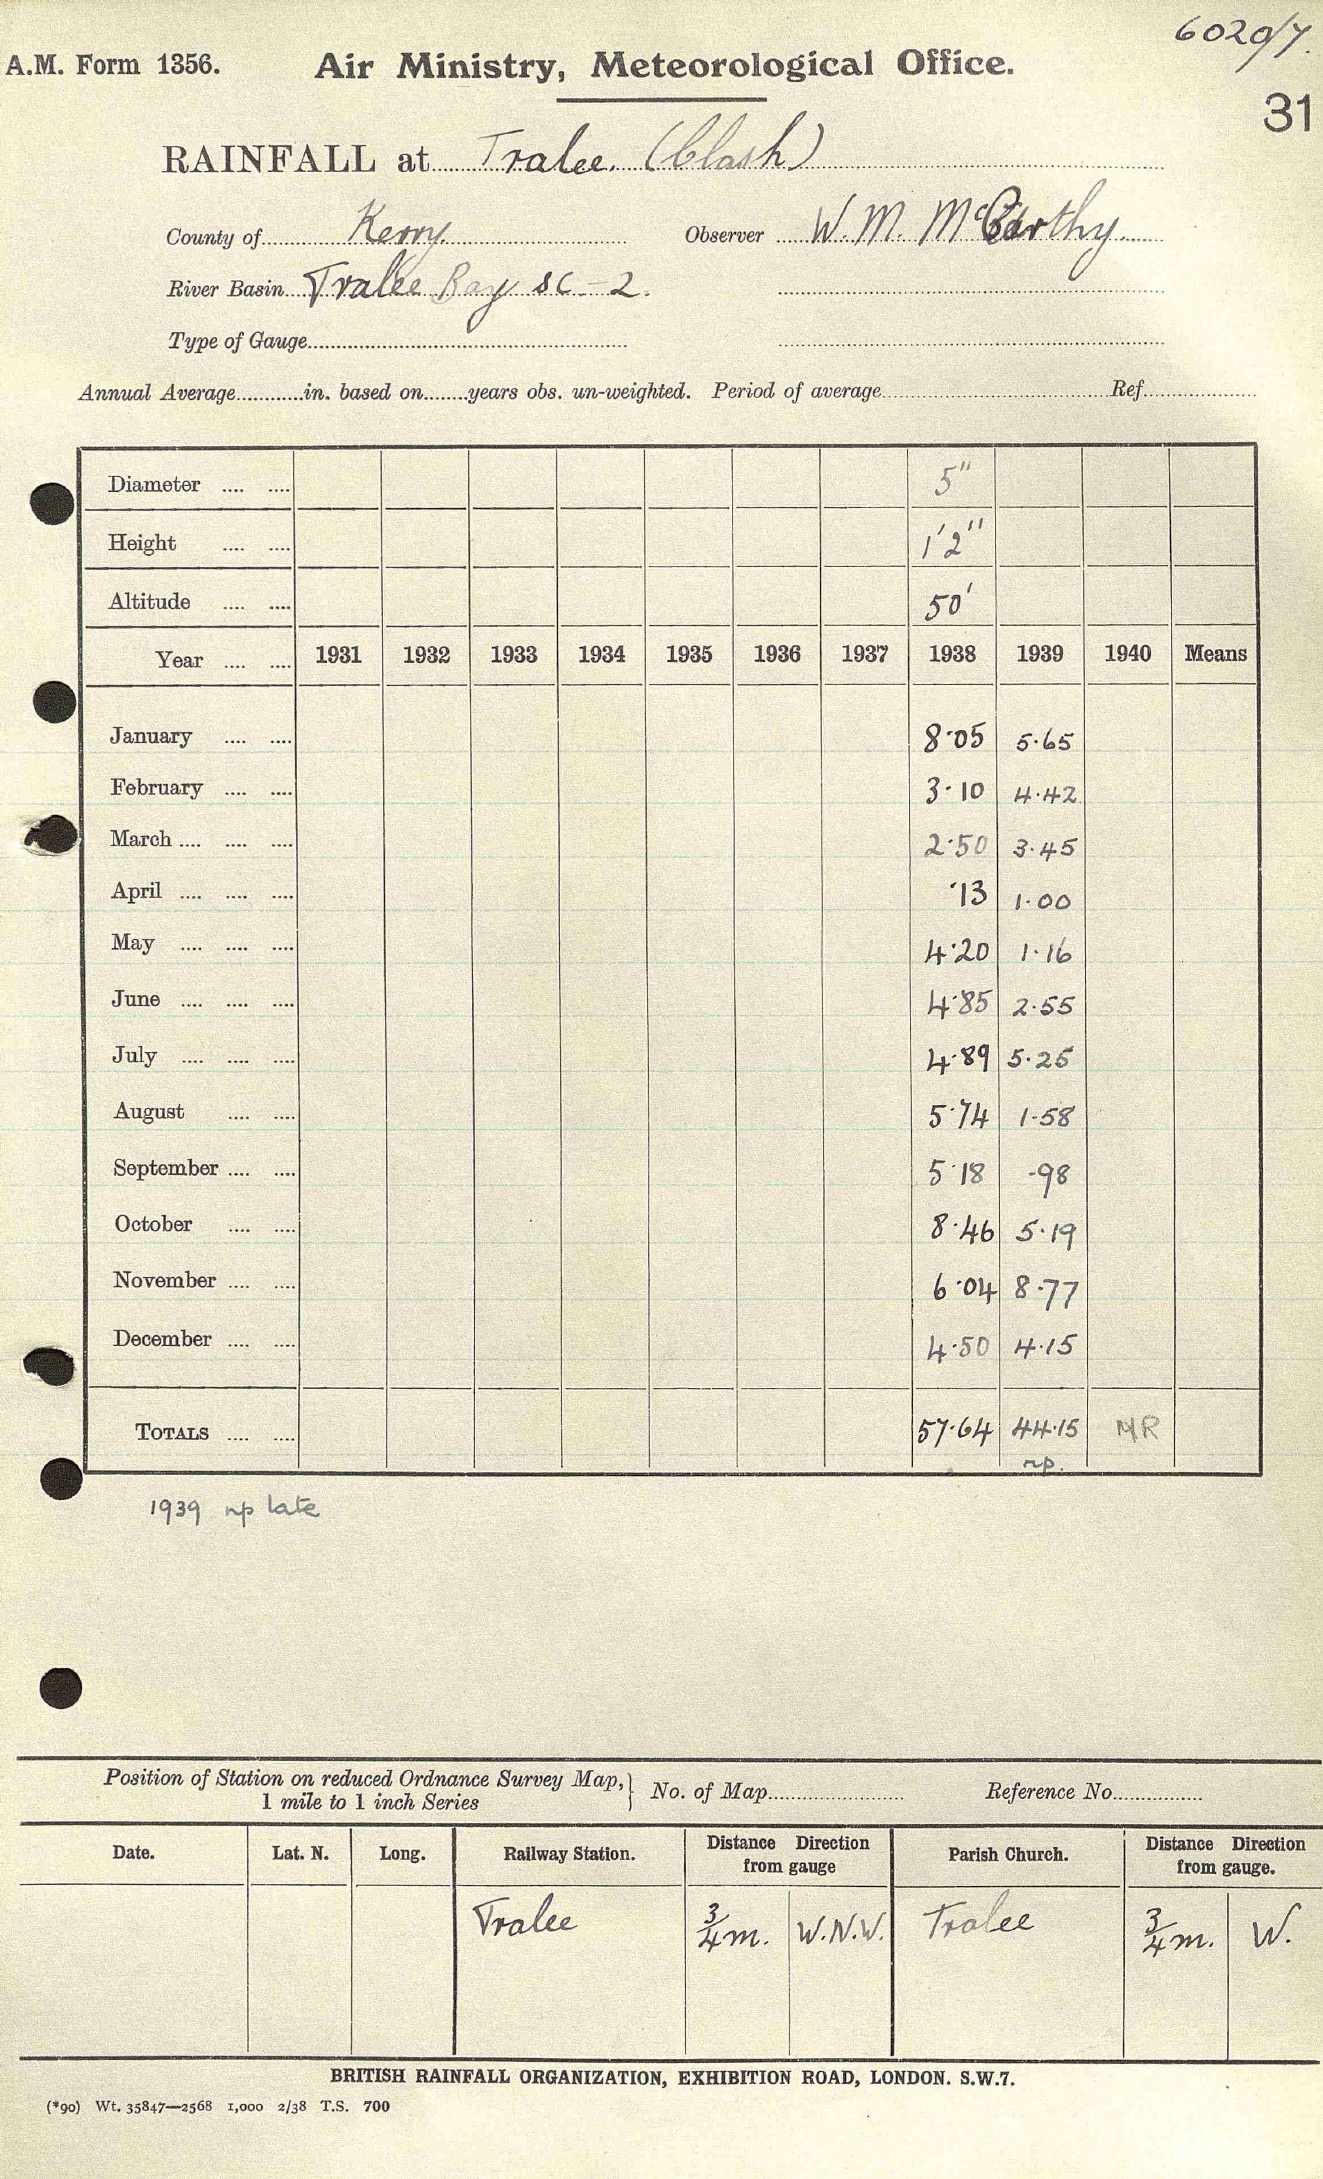 6020/7.
A.M. Form 1356. Air Ministry, Meteorological Office.
31
RAINFALL at Tralee. (Clash)
County of Kerry. Observer W. M. McCarthy.
River Basin Tralee Bay SC-2.
Type of Gauge
Annual Average in. based on years obs. un-weighted. Period of average Ref.
Diameter 5"
Height 1'2"
Altitude 50'
Year 1931 1932 1933 1934 1935 1936 1937 1938 1939 1940 Means
January 8·05 5·65
February 3·10 4·42
March 2·50 3·45
April ·13 1·00
May 4·20 1·16
June 4·85 2·55
July 4·89 5·25
August 5·74 1·58
September 5·18 ·98
October 8·46 5·19
November 6·04 8·77
December 4·50 4·15
TOTALS 57·64 44·15 NR
np.
1939 np late
Position of Station on reduced Ordnance Survey Map, 1 mile to 1 inch Series } No. of Map Reference No.
Date. Lat. N. Long. Railway Station. Distance Direction from gauge Parish Church. Distance Direction from gauge.
Tralee 3/4 m. W.N.W. Tralee 3/4 m. W.
BRITISH RAINFALL ORGANIZATION, EXHIBITION ROAD, LONDON. S.W.7.
(*90) Wt. 35847—2568 1,000 2/38 T.S. 700